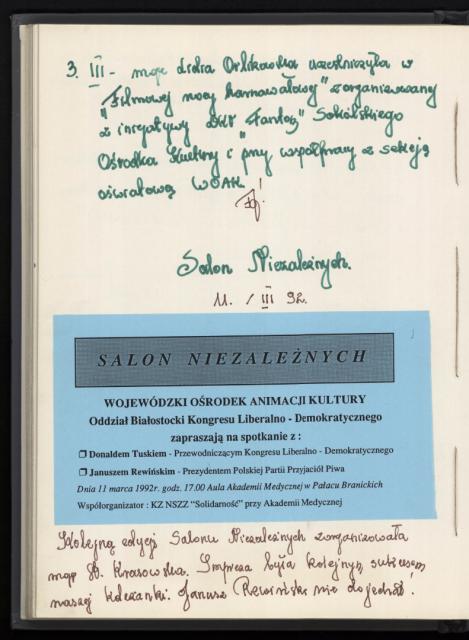 3. III - mgr Lidia Orlikowska uczestniczyła w
"Filmowej nocy karnawałowej" zorganizowanej
z inicjatywy DKF "Fantom" Sokólskiego
Ośrodka Kultury i przy współpracy z sekcją
oświatową WOAK!
Salon Niezależnych.
11. / III 92.
SALON NIEZALEŻNYCH
WOJEWÓDZKI OŚRODEK ANIMACJI KULTURY
Oddział Białostocki Kongresu Liberalno - Demokratycznego
zapraszają na spotkanie z :
❒ Donaldem Tuskiem - Przewodniczącym Kongresu Liberalno - Demokratycznego
❒ Januszem Rewińskim - Prezydentem Polskiej Partii Przyjaciół Piwa
Dnia 11 marca 1992r. godz. 17.00 Aula Akademii Medycznej w Pałacu Branickich
Współorganizator : KZ NSZZ "Solidarność" przy Akademii Medycznej
Kolejną edycję Salonu Niezależnych zorganizowała
mgr B. Krasowska. Impreza była kolejnym sukcesem
naszej koleżanki. Janusz Rewiński nie dojechał!